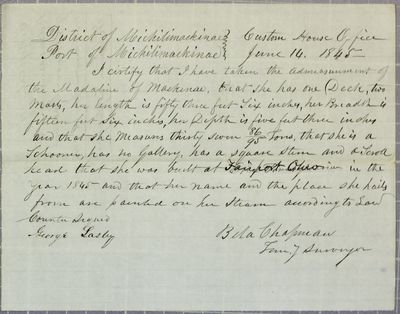 District of Michilimackinac } Custom House Office
Port of Michilimackinac } June 14. 1845
I certify that I have taken the admeasurement of
the Madaline of Mackinac, that she has one Deck, two
Masts, her length is fifty three feet Six inches, her Breadth is
fifteen feet Six inches, her Depth is five feet three inches
and that she Measures thirty seven 86/95 Tons, that she is a
Schooner, has no Gallery, has a square Stern and a Scroll
head that she was built at Fairport Ohio in the
year 1845 and that her name and the place she hails
from are painted on her Stearn according to Law
Counter Signed
George Lasley
Bela Chapman
Temy Surveyor